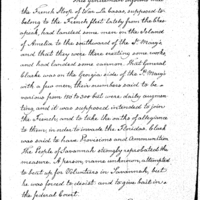 the French Sloop of War La
belong to the French fleet lately from the
had landed some men on the Island
of Amelia to the southward of the St. Mary's
and that they were then erecting some works
and had landed some cannon. That General
Clarke was on the Georgia side of the St. Mary's
with a few men, their numbers said to be
from 100 to 300 but were daily augmen
ting and it was supposed intended to join
the French, and to take the oaths of allegiance
to them, in order to invade the Floridas. Clark
was said to have Provisions and Ammunition
The People of Savannah strongly reprobated the
measure. A person name unknown, attempted
to beat up for Volunteers in Savannah, but
he was forced to desist and to give bail in
the federal Court.